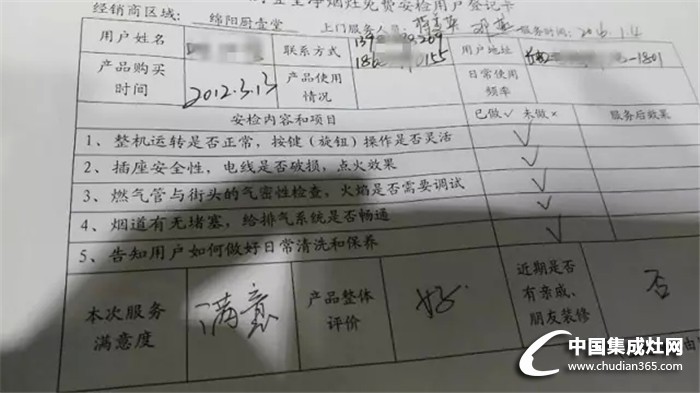 净烟灶免费安检用户登记卡
经销商区域: 绵阳厨壹堂 上门服务人员 服务时间: 2016.1.4
用户姓名 联系方式 139 269 用户地址 -1801
186 0155
产品购买时间 2012.3.13 产品使用情况 日常使用频率
安检内容和项目 已做√ 未做× 服务后效果
1、整机运转是否正常,按健(旋钮)操作是否灵活 √
2、插座安全性,电线是否破损,点火效果 √
3、燃气管与街头的气密性检查,火焰是否需要调试 √
4、烟道有无堵塞,给排气系统是否畅通 √
5、告知用户如何做好日常清洗和保养 √
本次服务满意度 满意 产品整体评价 好 近期是否有亲戚、朋友装修 否
中国集成灶网
www.chudian365.com